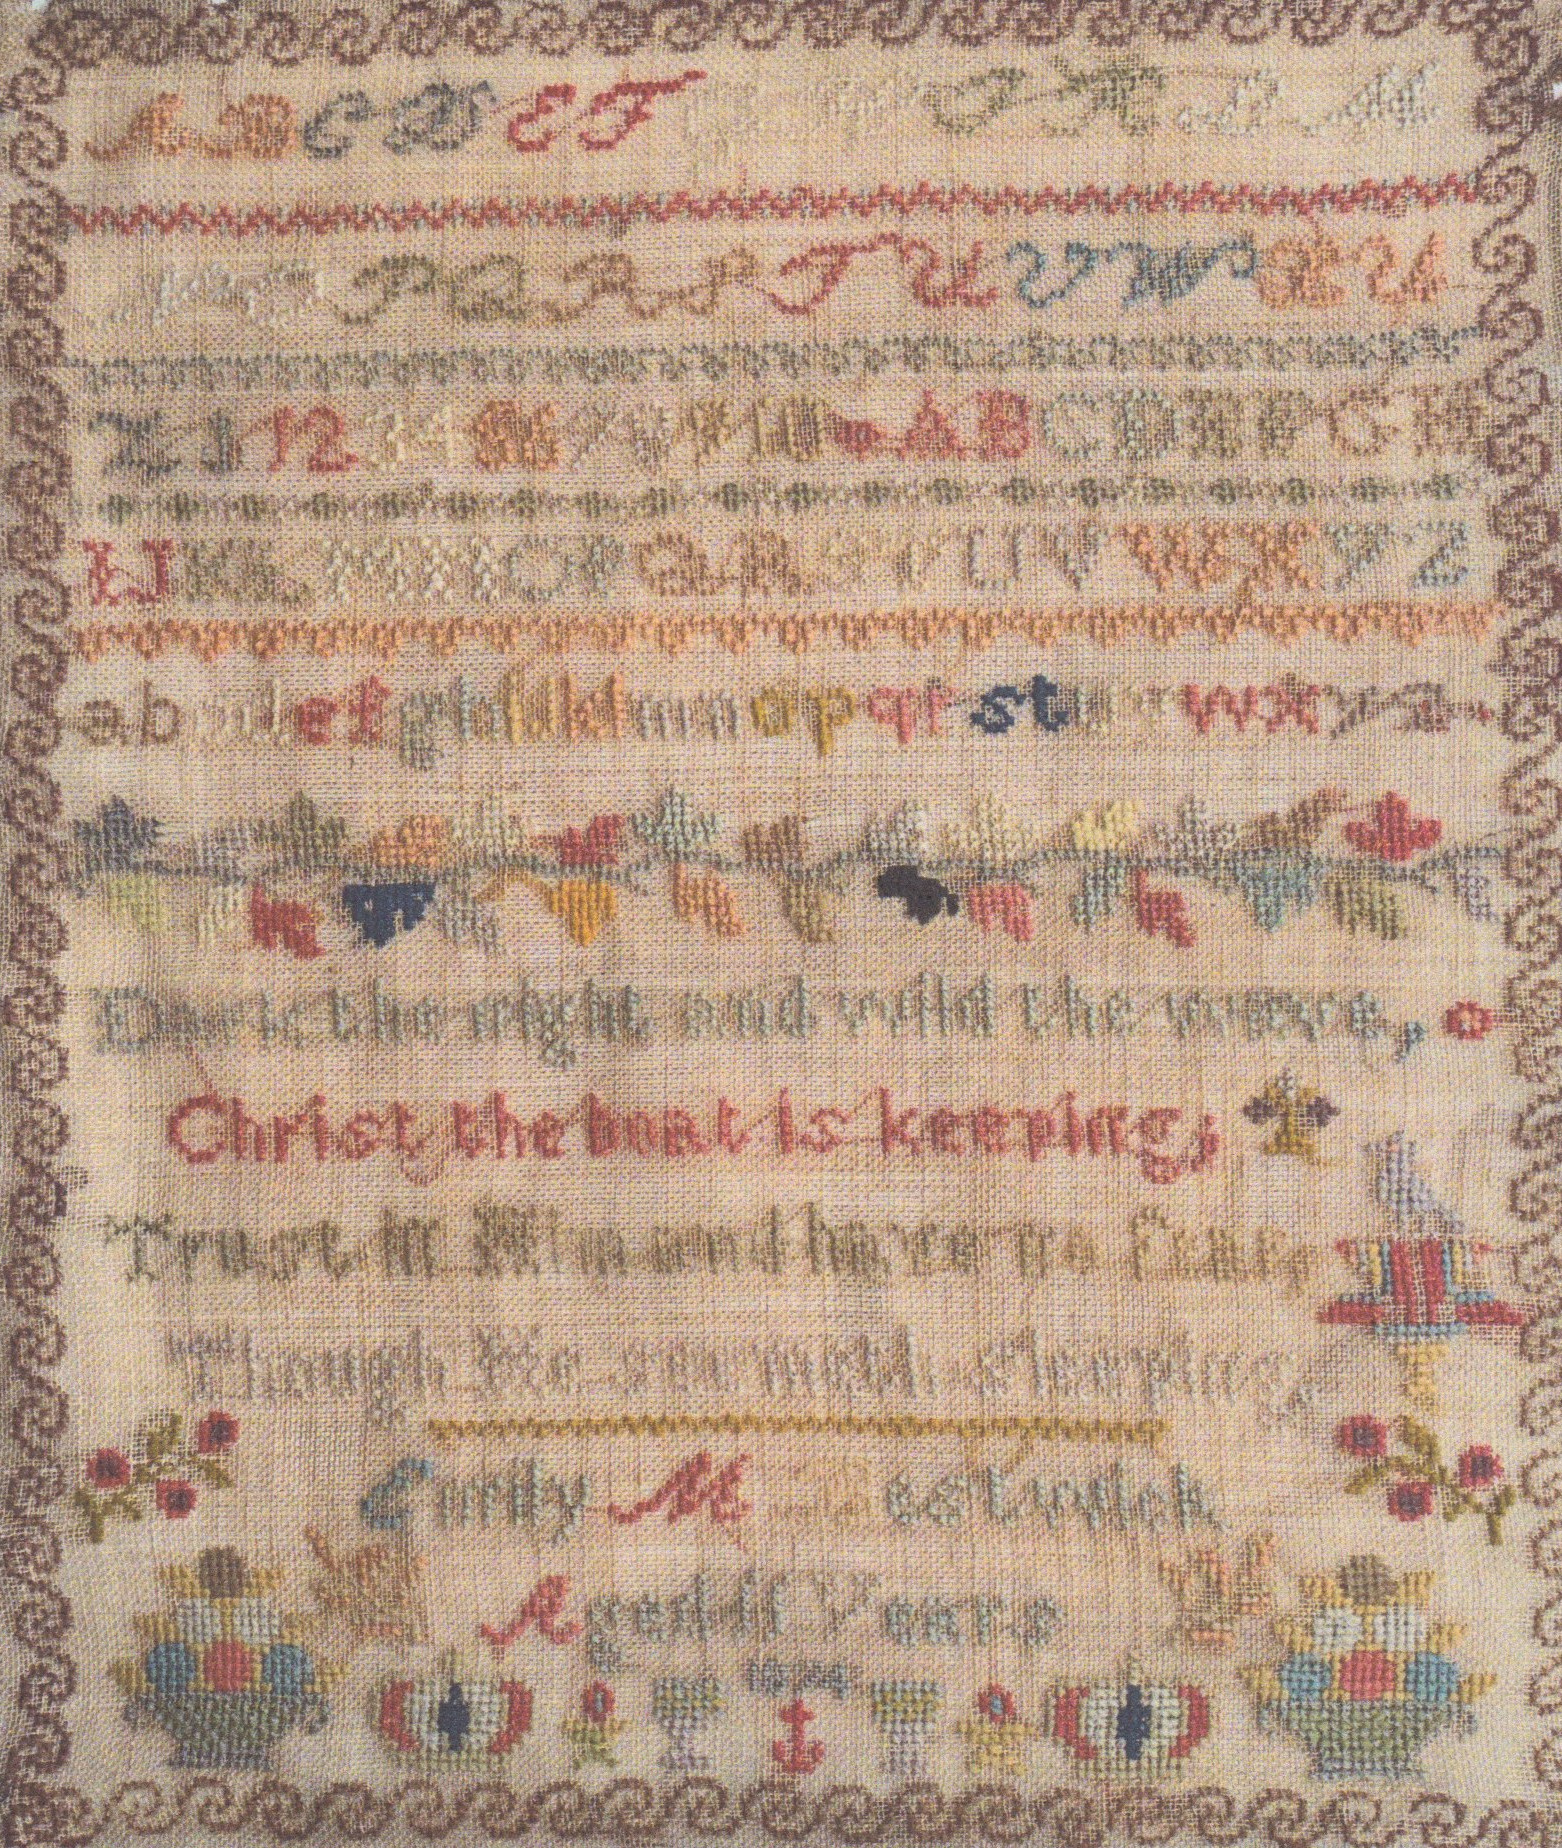 A B C D E F I K L M
N O P Q R S T U V W X Y
Z 1 2 3 4 A B C D E F G H
I J K L M N O P Q R S T U V W X Y Z
a b c d e f g h i j k l m n o p q r s t u v w x y z
Dark the night and wild the wave,
Christ the boat is keeping;
Trust in Him and have no fear,
Though He sleeping.
Emily M Bestwick
Aged 11 Years